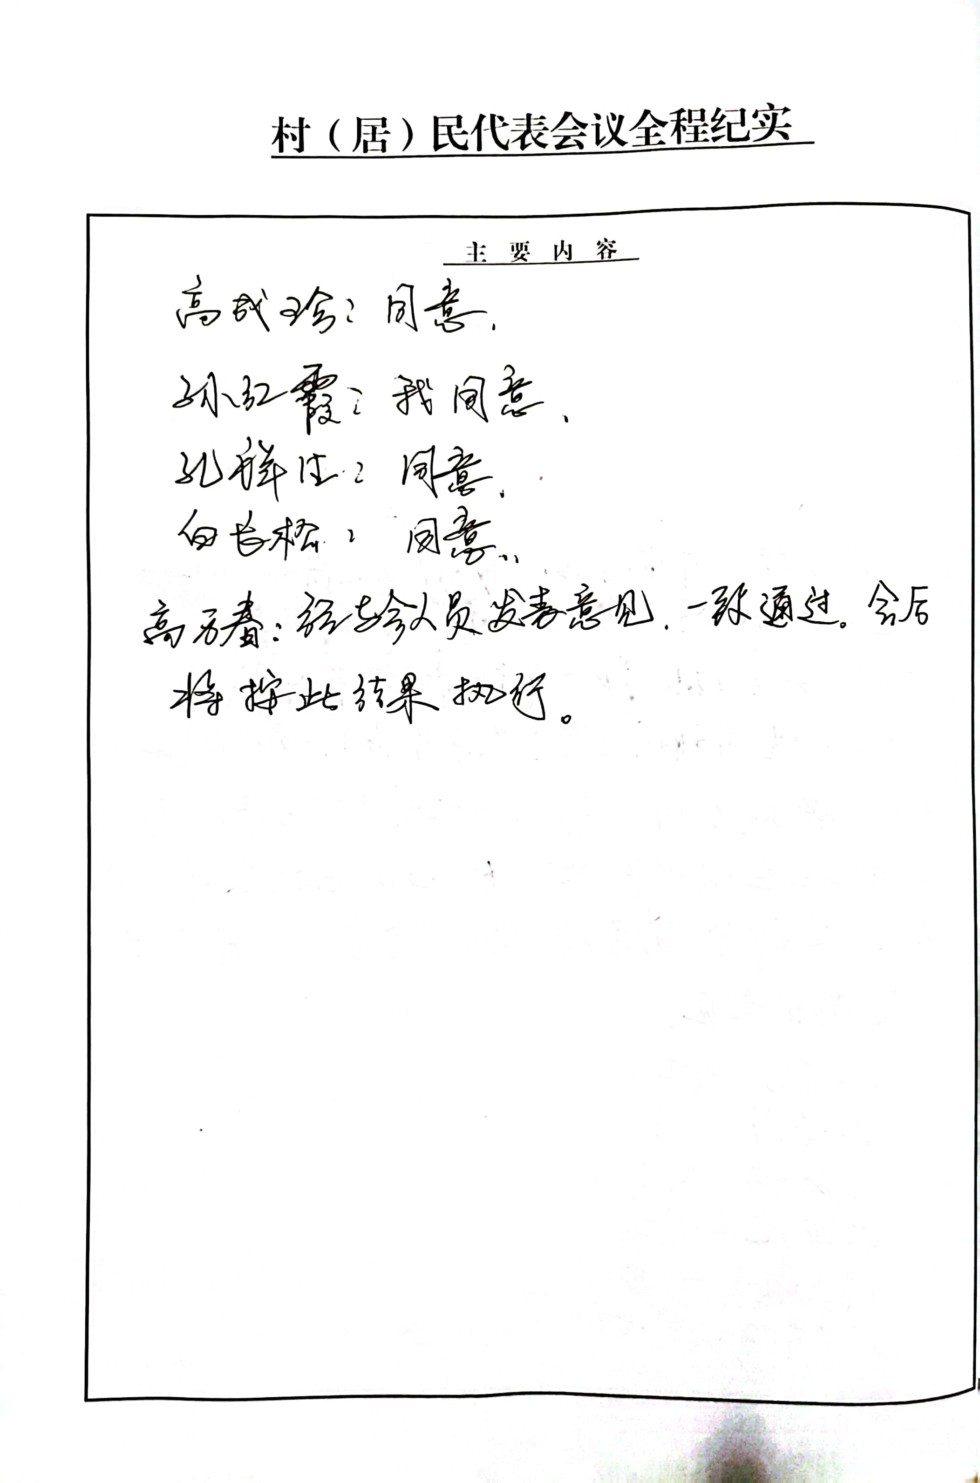 村（居）民代表会议全程纪实
主要内容
高成珍：同意.
孙红霞：我同意、
孔祥法：同意.
白长松：同意.
高万春：经与会人员发表意见，一致通过。会后
将按此结果执行。